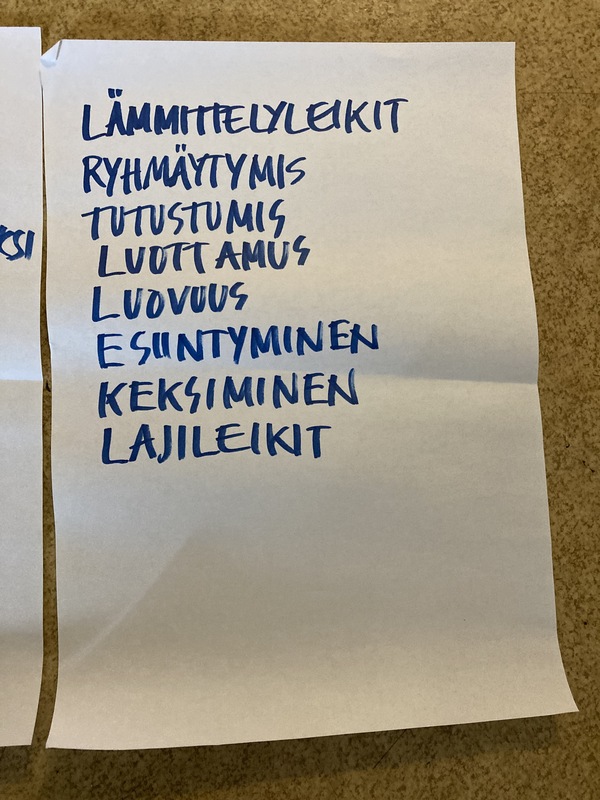 LÄMMITTELYLEIKIT
RYHMÄYTYMIS
TUTUSTUMIS
LUOTTAMUS
LUOVUUS
ESIINTYMINEN
KEKSIMINEN
LAJILEIKIT